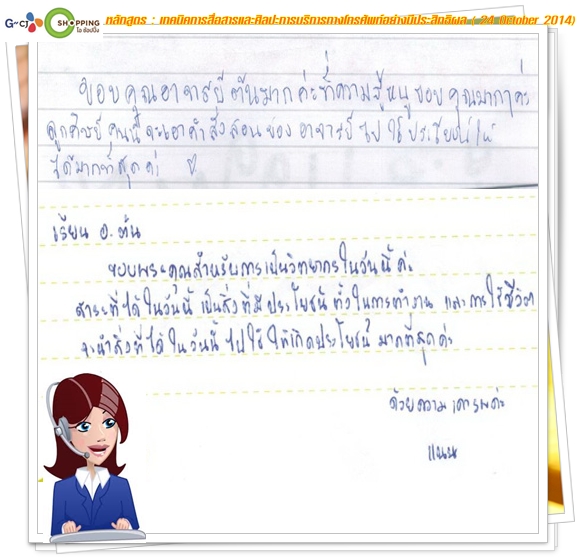 G~CJ O SHOPPING โอ ช้อปปิ้ง
หลักสูตร : เทคนิคการสื่อสารและศิลปะการบริการทางโทรศัพท์อย่างมีประสิทธิผล ( 24 October 2014)
ขอบคุณอาจารย์ต้นมากค่ะที่ความรู้หนูขอบคุณมากๆค่ะ
ลูกศิษย์คนนี้จะเอาคำสั่งสอนของอาจารย์ไปใช้ประโยชน์ให้
ได้มากที่สุดค่ะ
เรียน อ.ต้น
ขอบพระคุณสำหรับการเป็นวิทยากรในวันนี้ค่ะ
สาระที่ได้ในวันนี้ เป็นสิ่งที่มีประโยชน์ ทั้งในการทำงาน และการใช้ชีวิต
จะนำสิ่งที่ได้ในวันนี้ไปใช้ให้เกิดประโยชน์ มากที่สุดค่ะ
ด้วยความเคารพค่ะ
แนน